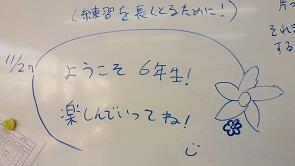 (練習を長くとるために!)
11/27
ようこそ 6年生!
楽しんでいってね!
それも
する